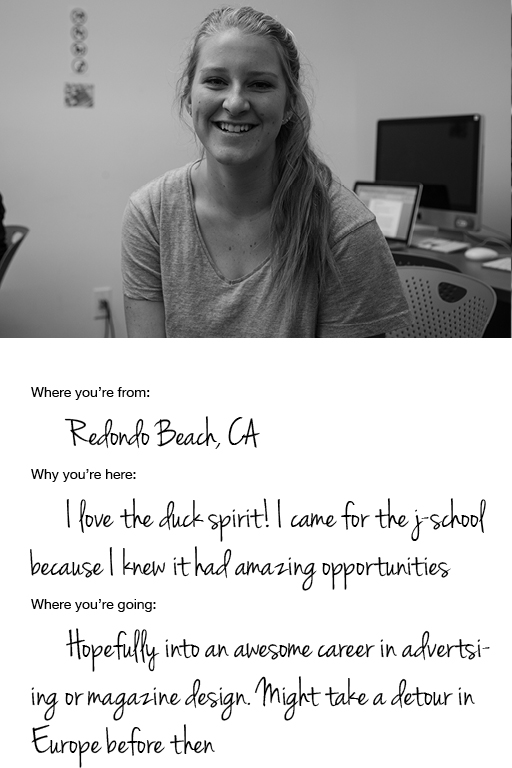 Where you're from:
Redondo Beach, CA
Why you're here:
I love the duck spirit! I came for the j-school
because I knew it had amazing opportunities
Where you're going:
Hopefully into an awesome career in advertsi-
ing or magazine design. Might take a detour in
Europe before then